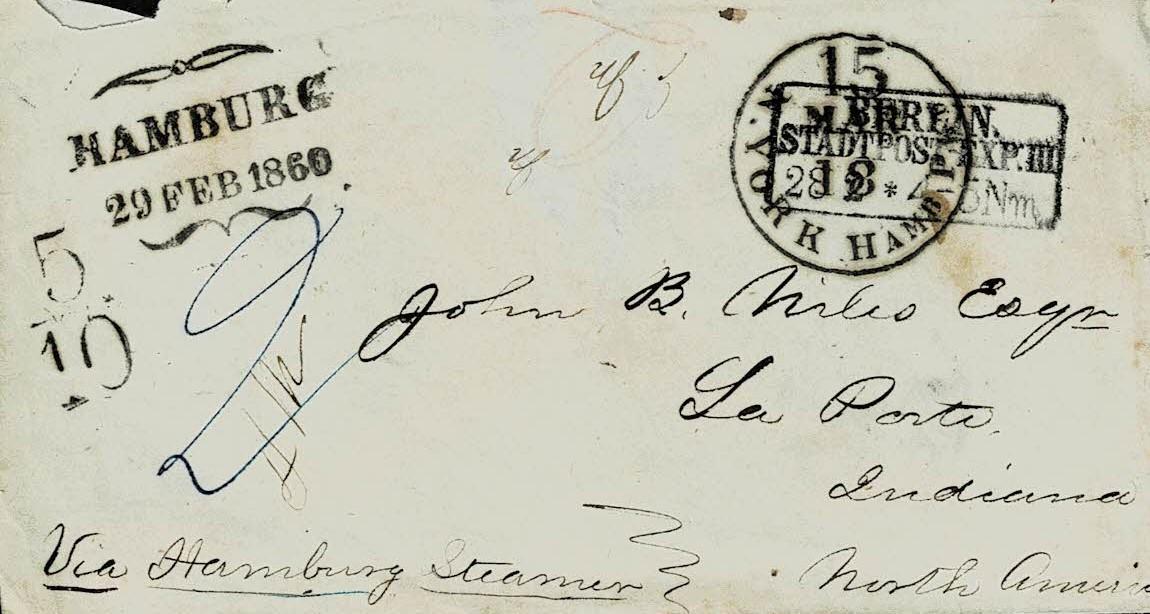 HAMBURG
29 FEB 1860
5
10
N. YORK HAMB. PKT.
15
MAR
18
BERLIN.
STADTPOST-EXP. III
28 2 * 4-5 Nm
2
John B. Niles Esqr
La Porte,
Indiana
Via Hamburg Steamer
North Ameri